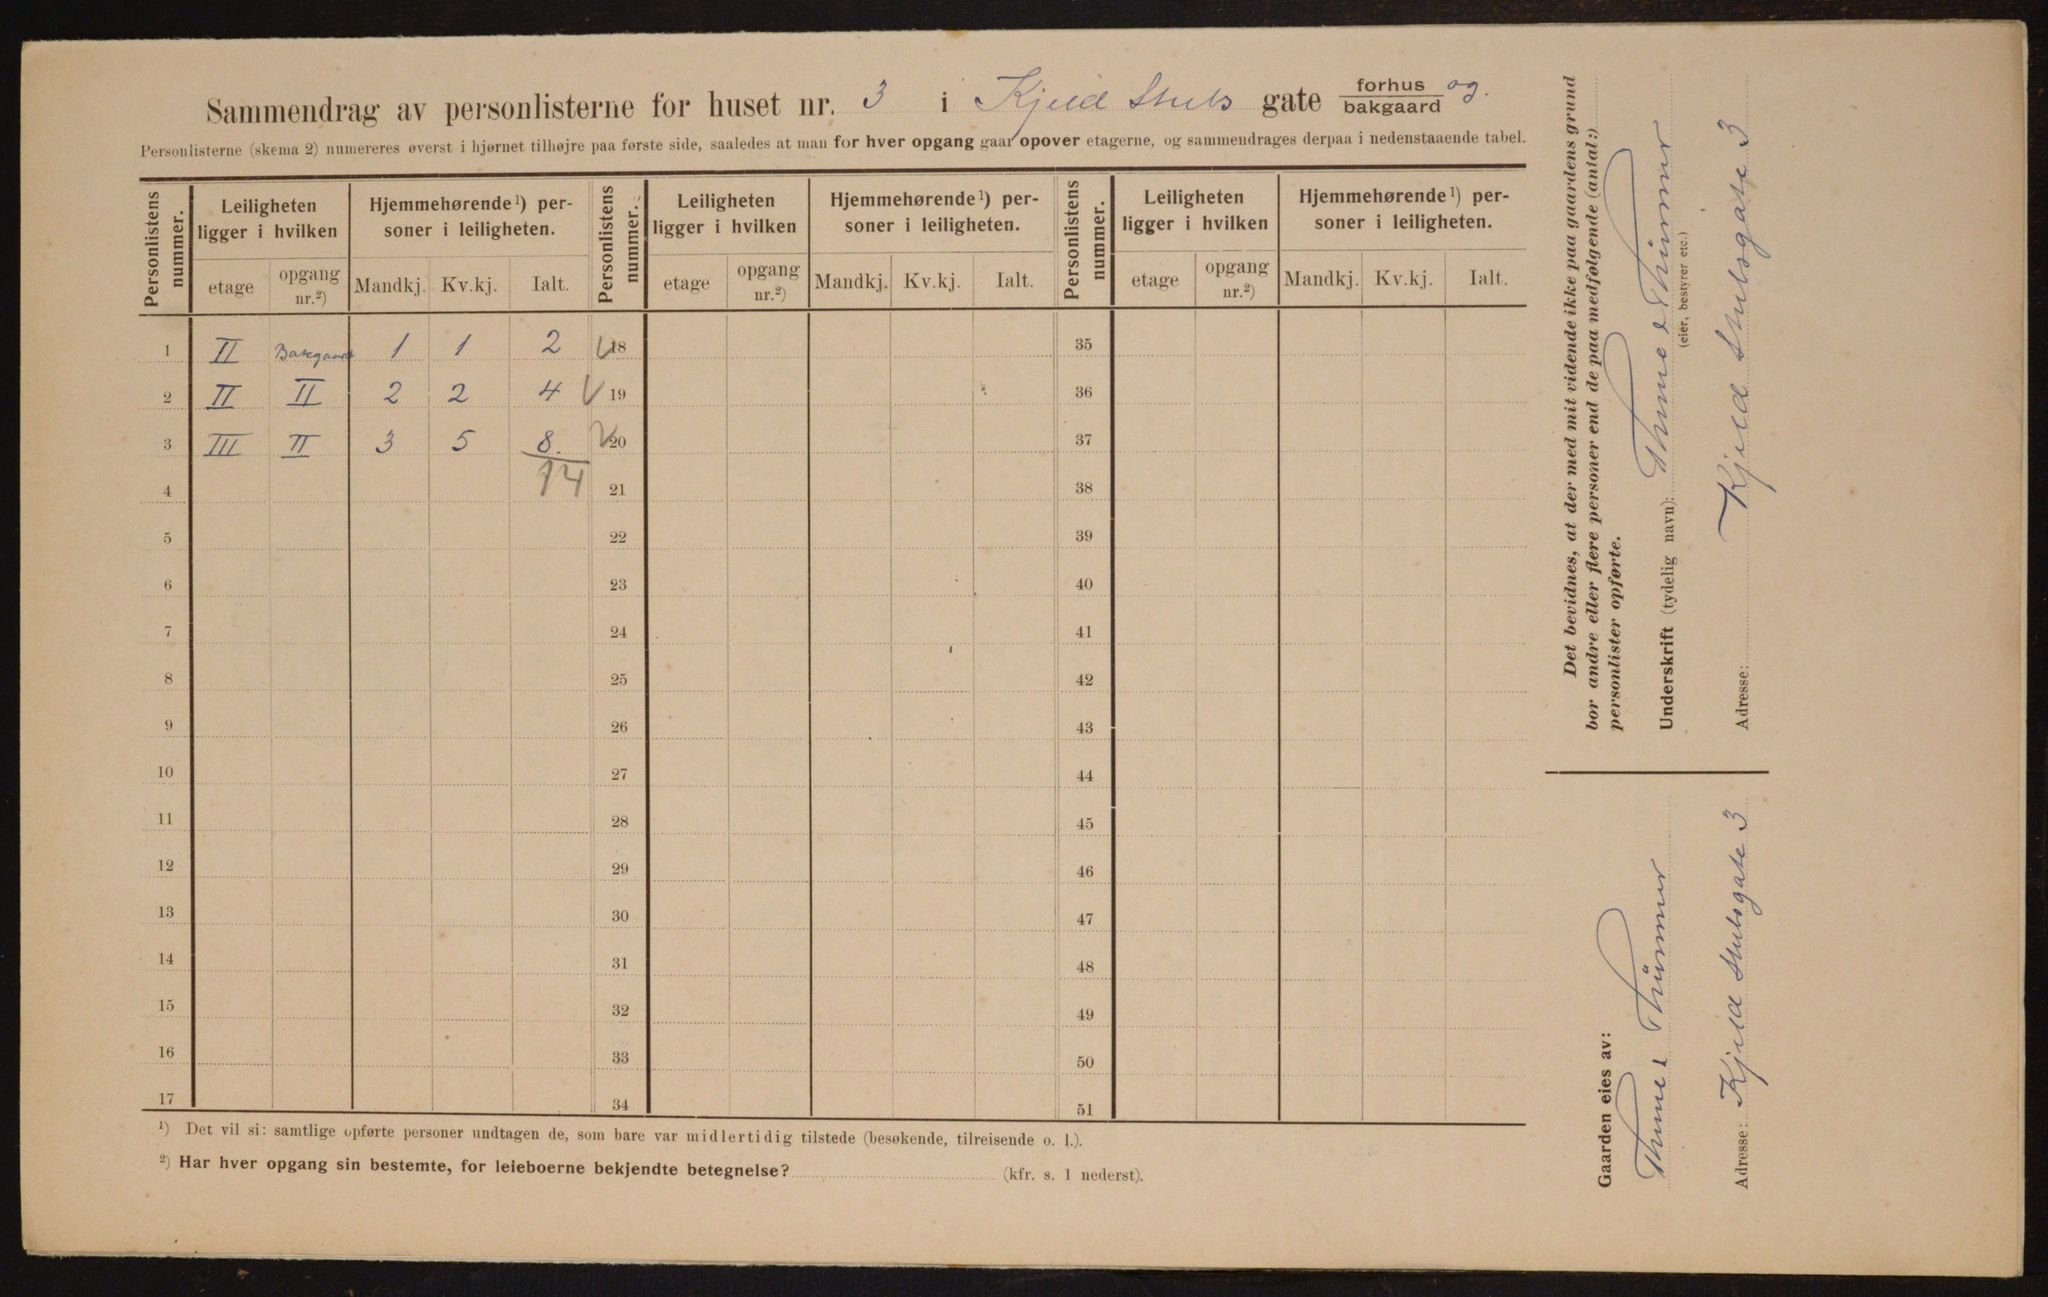 Sammendrag av personlisterne for huset nr. 3 i Kjeld Stubs gate forhus og
bakgaard
Personlisterne (skema 2) numereres øverst i hjørnet tilhøjre paa første side, saaledes at man for hver opgang gaar opover etagerne, og sammendrages derpaa i nedenstaaende tabel.
Personlistens nummer. Leiligheten ligger i hvilken Hjemmehørende¹) personer i leiligheten. Personlistens nummer. Leiligheten ligger i hvilken Hjemmehørende¹) personer i leiligheten. Personlistens nummer. Leiligheten ligger i hvilken Hjemmehørende¹) personer i leiligheten.
etage opgang nr.²) Mandkj. Kv.kj. Ialt. etage opgang nr.²) Mandkj. Kv.kj. Ialt. etage opgang nr.²) Mandkj. Kv.kj. Ialt.
1 II Bakgaard 1 1 2 18 35
2 II II 2 2 4 19 36
3 III II 3 5 8. 20 37
4 14 21 38
5 22 39
6 23 40
7 24 41
8 25 42
9 26 43
10 27 44
11 28 45
12 29 46
13 30 47
14 31 48
15 32 49
16 33 50
17 34 51
¹) Det vil si: samtlige opførte personer undtagen de, som bare var midlertidig tilstede (besøkende, tilreisende o. l.).
²) Har hver opgang sin bestemte, for leieboerne bekjendte betegnelse? (kfr. s. 1 nederst).
Det bevidnes, at der med mit vidende ikke paa gaardens grund
bor andre eller flere personer end de paa medfølgende (antal:)
personlister opførte.
Underskrift (tydelig navn): Thune & Thürmer
(eier, bestyrer etc.)
Adresse: Kjeld Stubsgate 3
Gaarden eies av:
Thune & Thürmer
Adresse: Kjeld Stubsgate 3